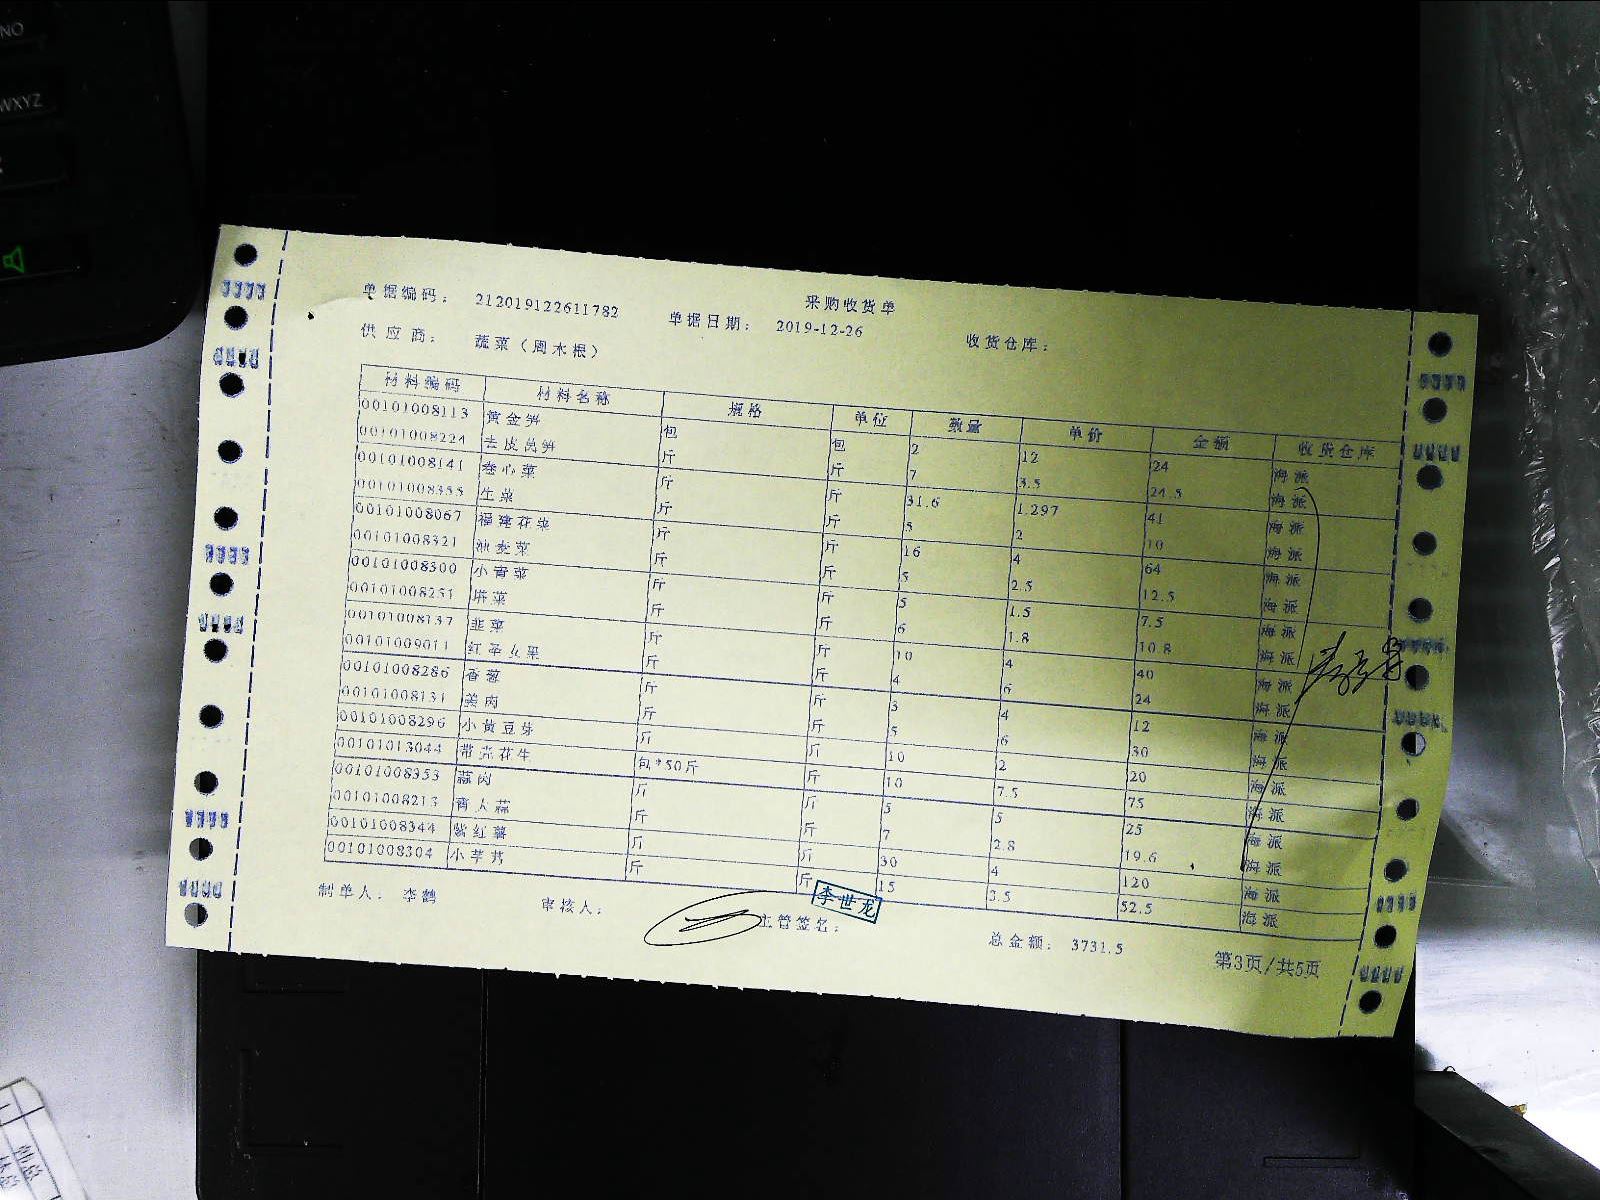 NO
WXYZ
采购收货单
单据编码: 212019122611782 单据日期: 2019-12-26 收货仓库:
供应商: 蔬菜(周木根)
材料编码 材料名称 规格 单位 数量 单价 金额 收货仓库
00101008113 黄金笋 包 包 2 12 24 海派
00101008224 去皮莴笋 斤 斤 7 3.5 24.5 海派
00101008141 卷心菜 斤 斤 31.6 1.297 41 海派
00101008355 生菜 斤 斤 5 2 10 海派
00101008067 福建花菜 斤 斤 16 4 64 海派
00101008321 油麦菜 斤 斤 5 2.5 12.5 海派
00101008300 小青菜 斤 斤 5 1.5 7.5 海派
00101008251 塔菜 斤 斤 6 1.8 10.8 海派
00101008137 韭菜 斤 斤 10 4 40 海派
00101009011 红圣女果 斤 斤 4 6 24 海派
00101008286 香葱 斤 斤 3 4 12 海派
00101008131 姜肉 斤 斤 5 6 30 海派
00101008296 小黄豆芽 斤 斤 10 2 20 海派
00101013044 带壳花生 包*50斤 斤 10 7.5 75 海派
00101008353 蒜肉 斤 斤 5 5 25 海派
00101008213 青大蒜 斤 斤 7 2.8 19.6 海派
00101008344 紫红薯 斤 斤 30 4 120 海派
00101008304 小芋艿 斤 斤 15 3.5 52.5 海派
制单人: 李鹤 审核人: 主管签名: 李世龙 总金额: 3731.5
第3页/共5页